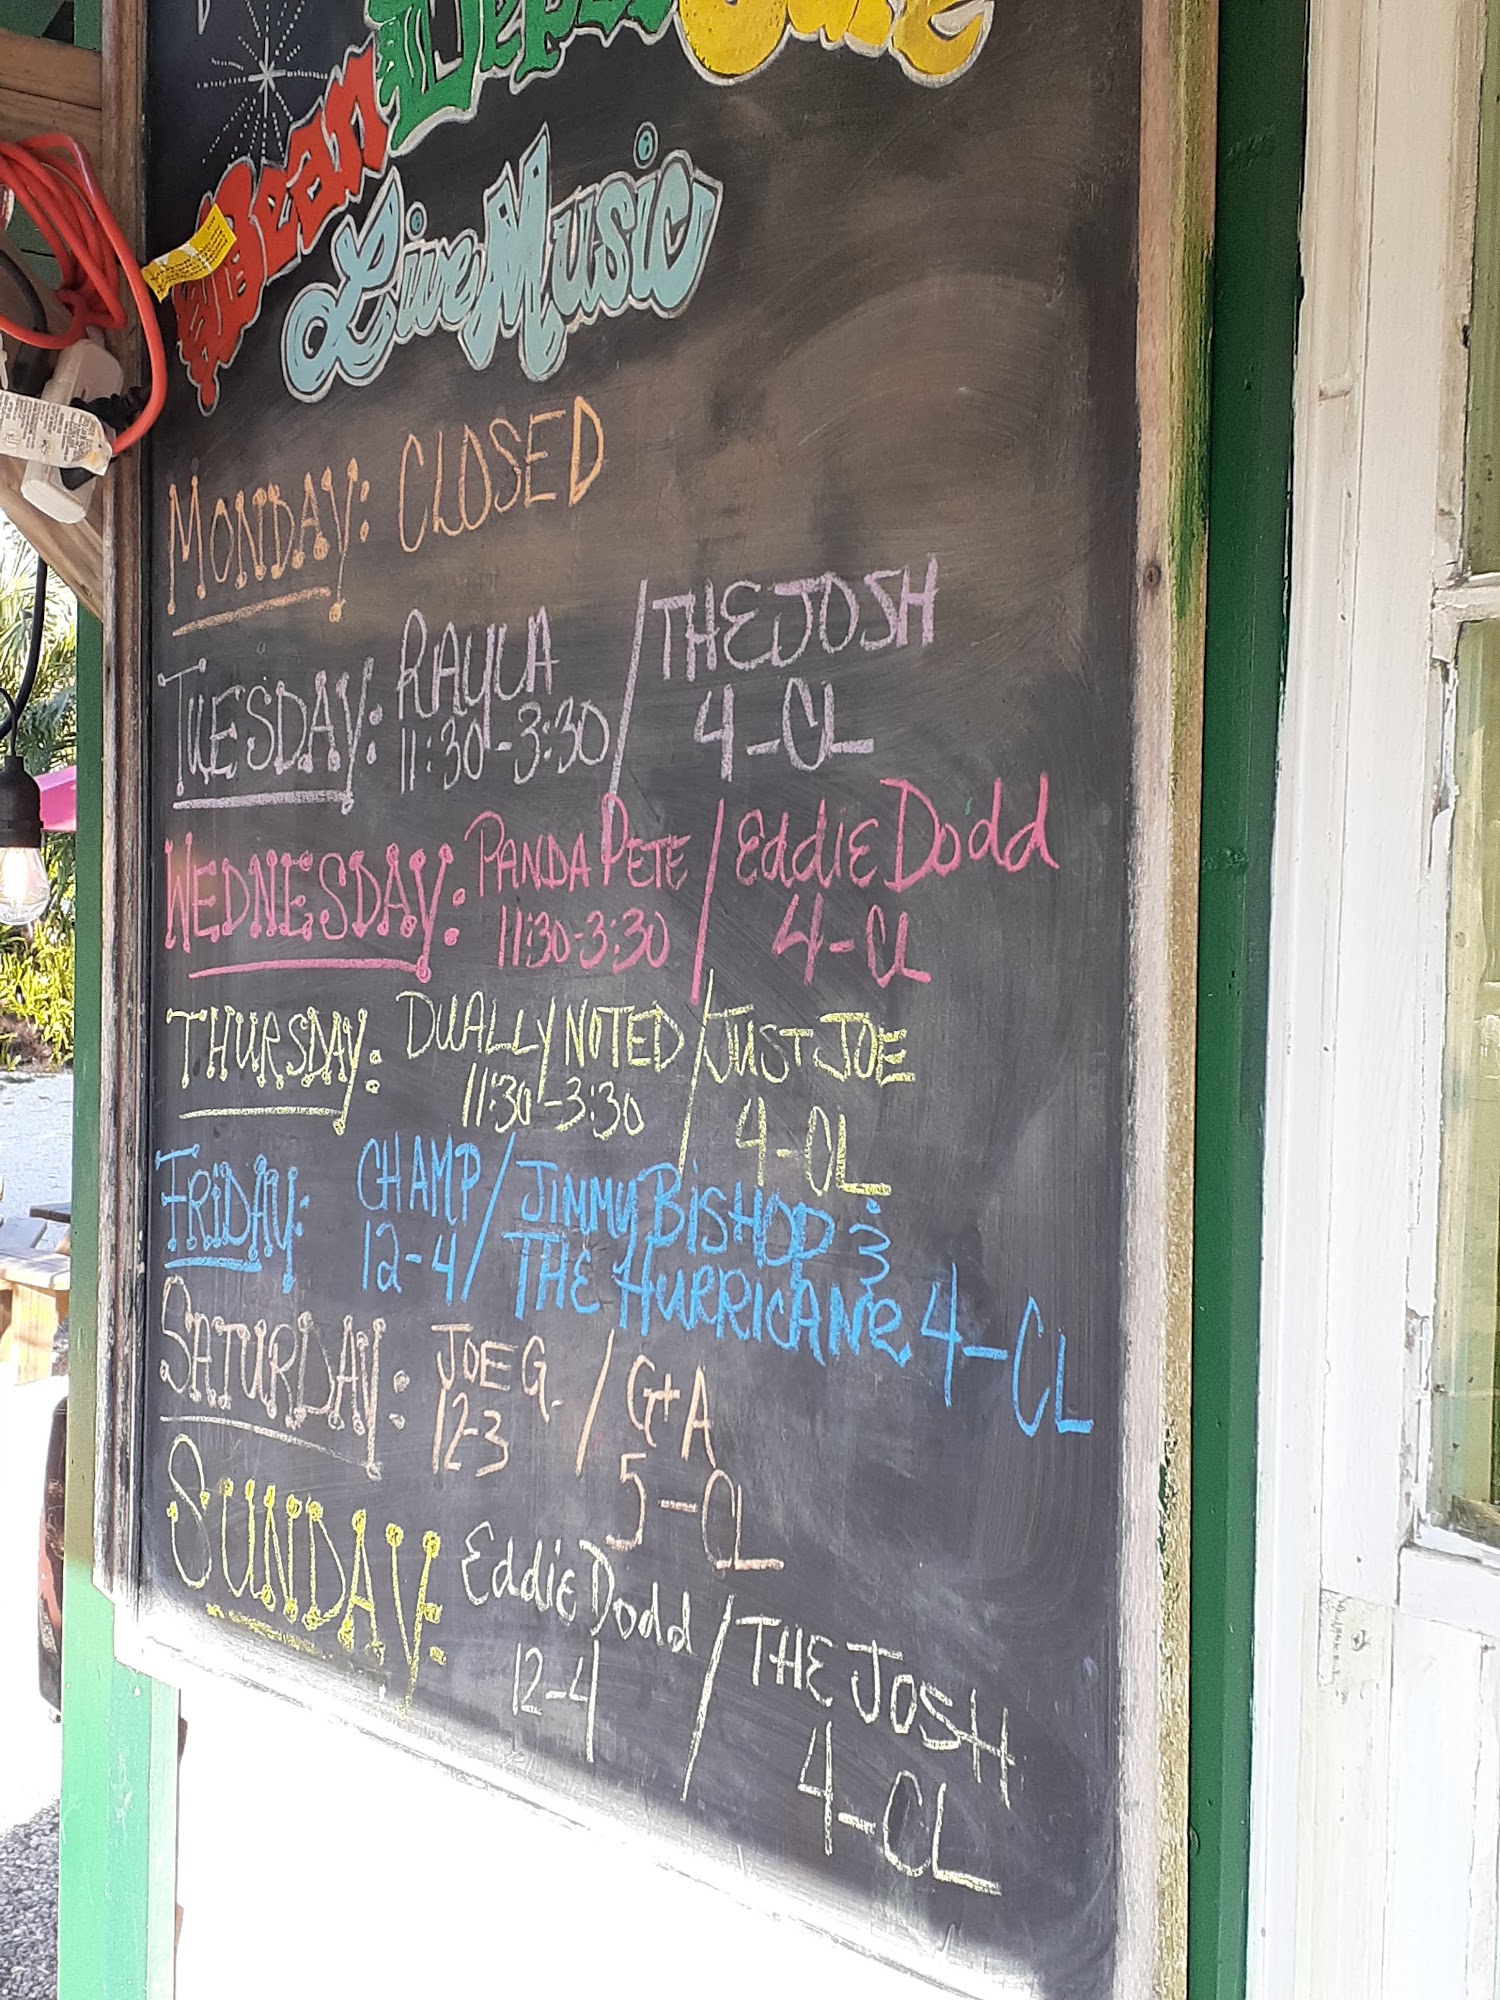 Bean Depot Cafe
Live Music
MONDAY: CLOSED
TUESDAY: RAYLA / THE JOSH
11:30-3:30 4-CL
WEDNESDAY: PANDA PETE / Eddie Dodd
11:30-3:30 4-CL
THURSDAY: DUALLY NOTED / JUST JOE
11:30-3:30 4-CL
FRIDAY: CHAMP / JIMMY BISHOP &
12-4 THE HURRICANE 4-CL
SATURDAY: JOE G. / G+A
12-3 5-CL
SUNDAY: Eddie Dodd / THE JOSH
12-4 4-CL